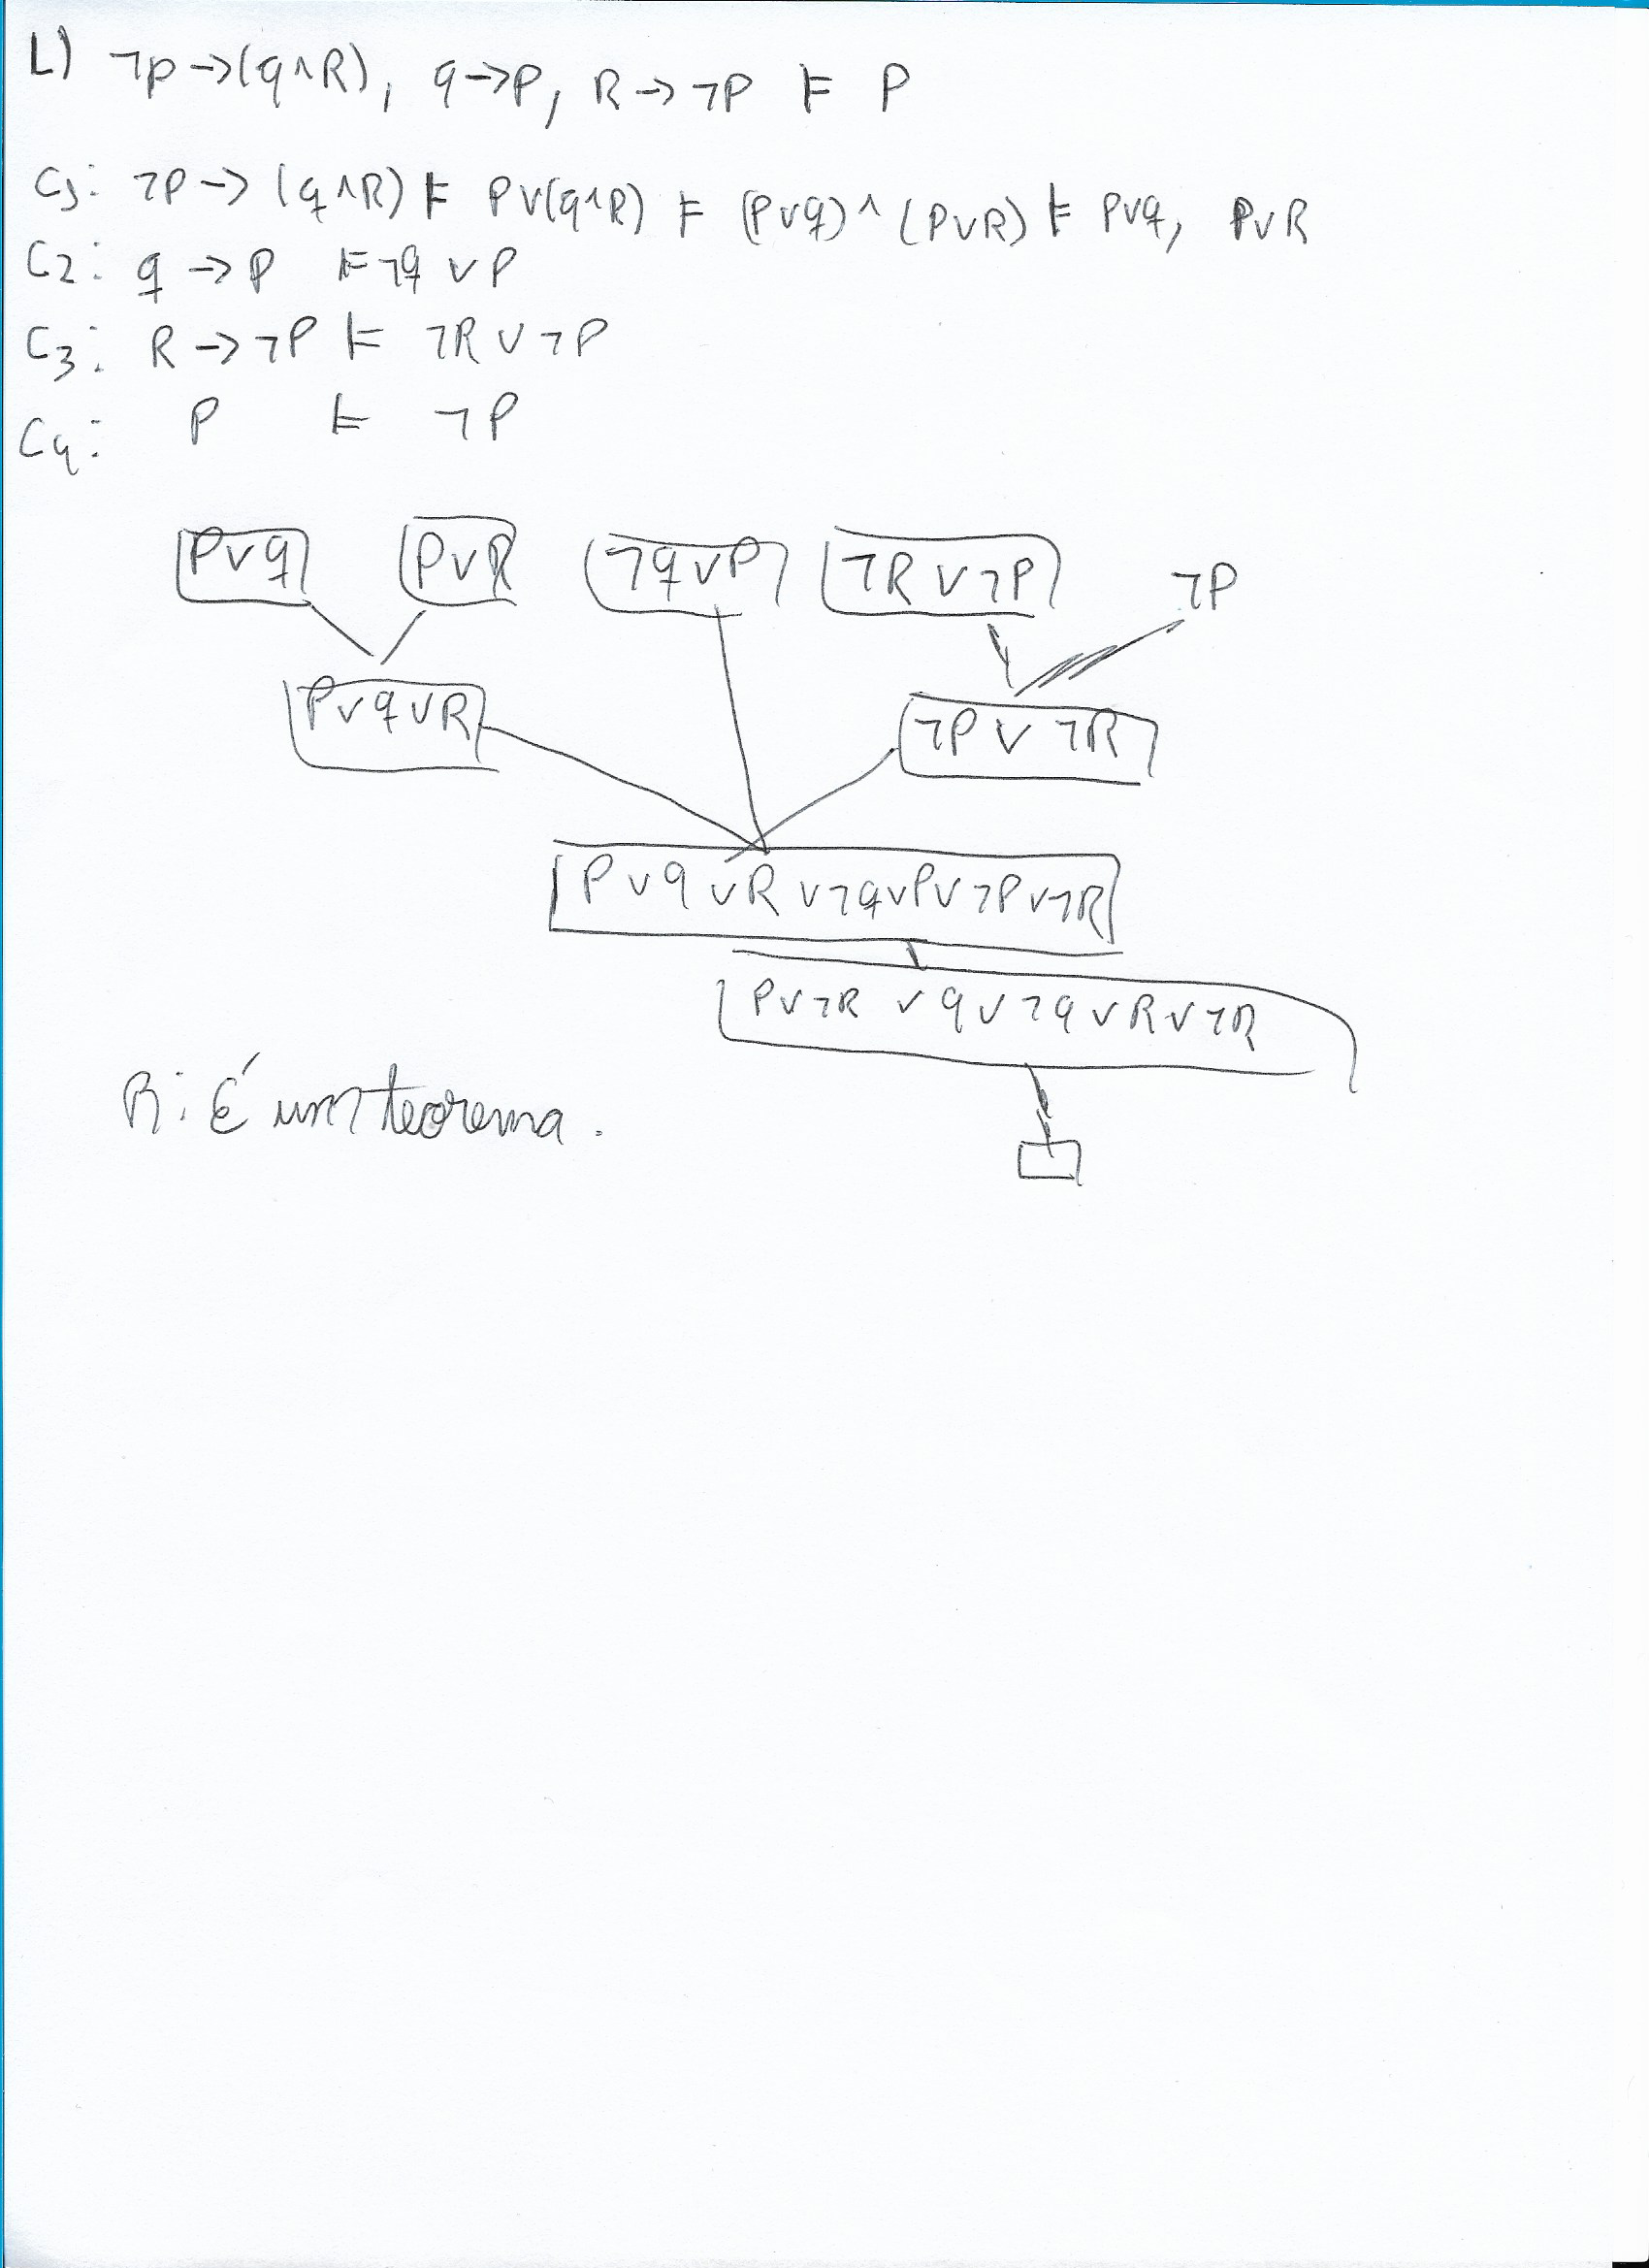 L) ¬p→(q∧R), q→P, R→¬P ⊨ P
C1: ¬P→(q∧R) ⊨ P∨(q∧R) ⊨ (P∨q)∧(P∨R) ⊨ P∨q, P∨R
C2: q→P ⊨ ¬q∨P
C3: R→¬P ⊨ ¬R∨¬P
C4: P ⊨ ¬P
P∨q P∨R ¬q∨P ¬R∨¬P ¬P
P∨q∨R ¬P∨¬R
P∨q∨R∨¬q∨P∨¬P∨¬R
P∨¬R∨q∨¬q∨R∨¬R
R: É um teorema.